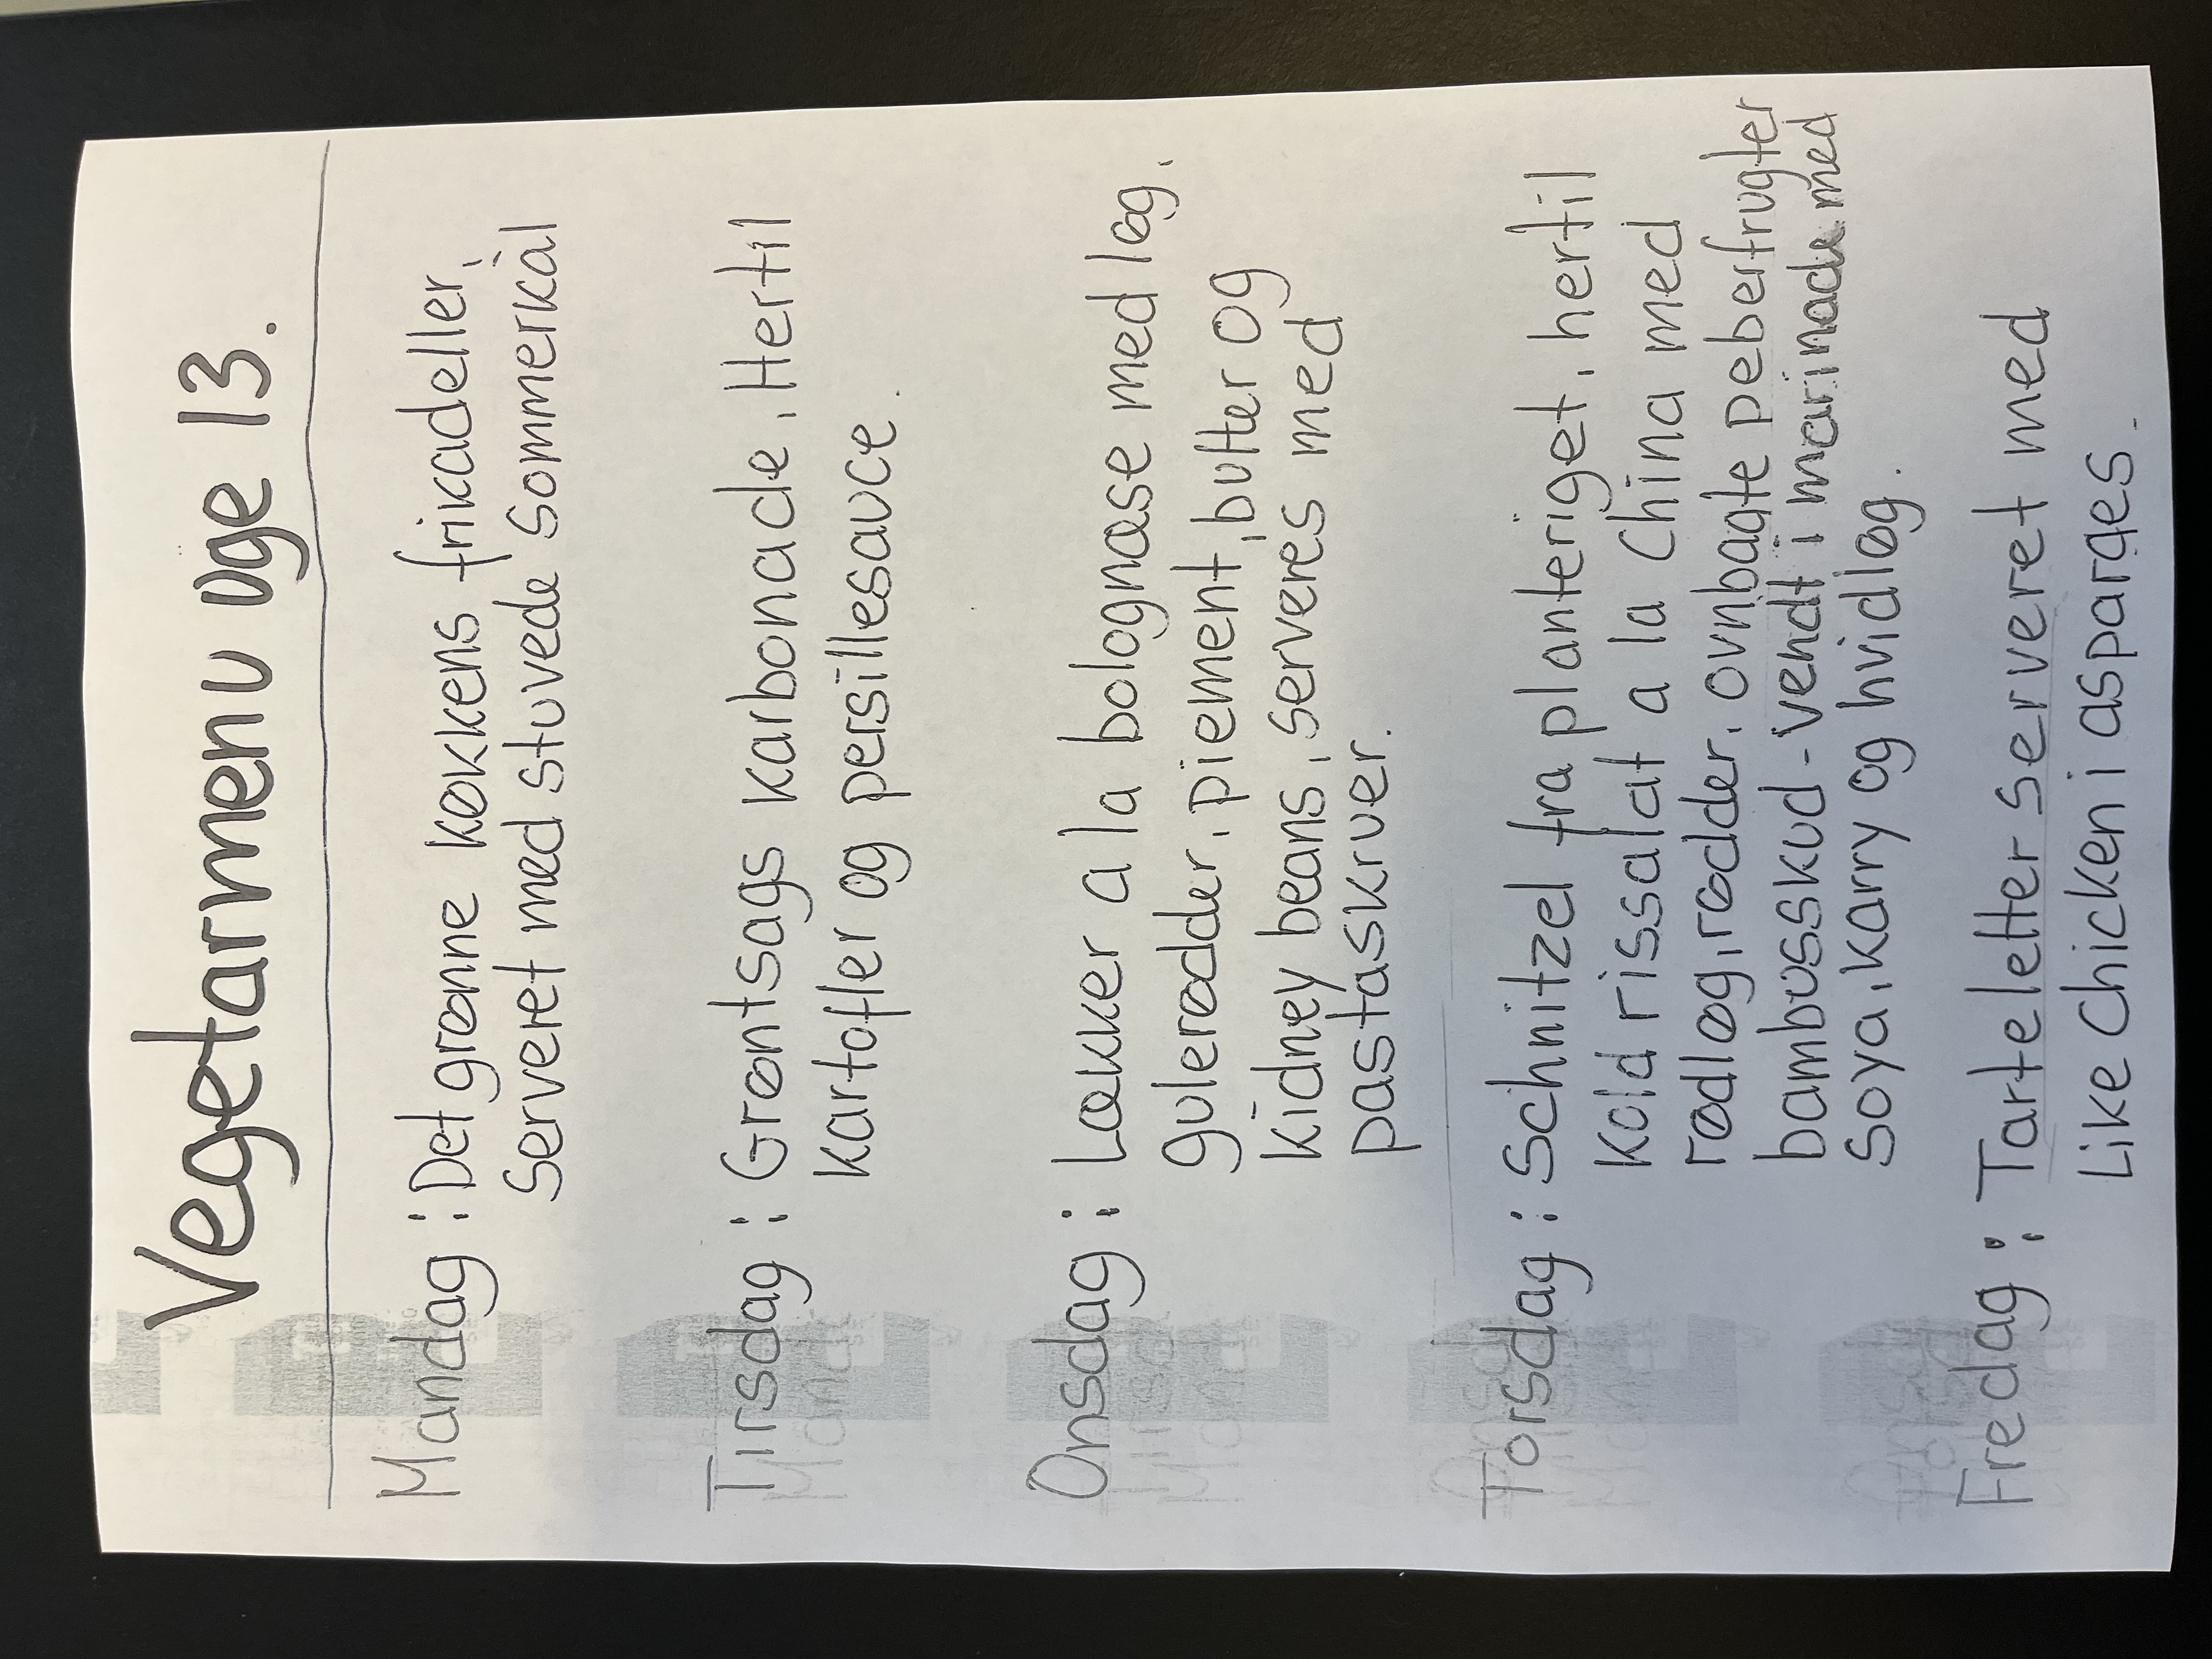 Vegetarmenu uge 13.
Mandag : Det grønne køkkens frikadeller,
serveret med stuvede sommerkål
Tirsdag : Grøntsags karbonade, Hertil
kartofler og persillesauce.
Onsdag : Lækker a la bolognase med løg,
gulerødder, piement, bulter og
kidney beans, serveres med
pastaskruer.
Torsdag : Schnitzel fra planteriget, hertil
kold rissalat a la China med
rødløg, rødder, ovnbagte peberfrugter
bambusskud - vendt i marinade med
soya, karry og hvidløg.
Fredag : Tarteletter serveret med
Like Chicken i asparges.